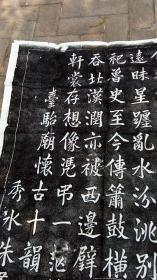 遠昧星躔亂水汾洮別
祀晉史至今傳簫鼓橫
吞北漢潤亦被西邊壁
軒裳存想像憑弔一
臺駘廟懷古十一韻
秀水朱